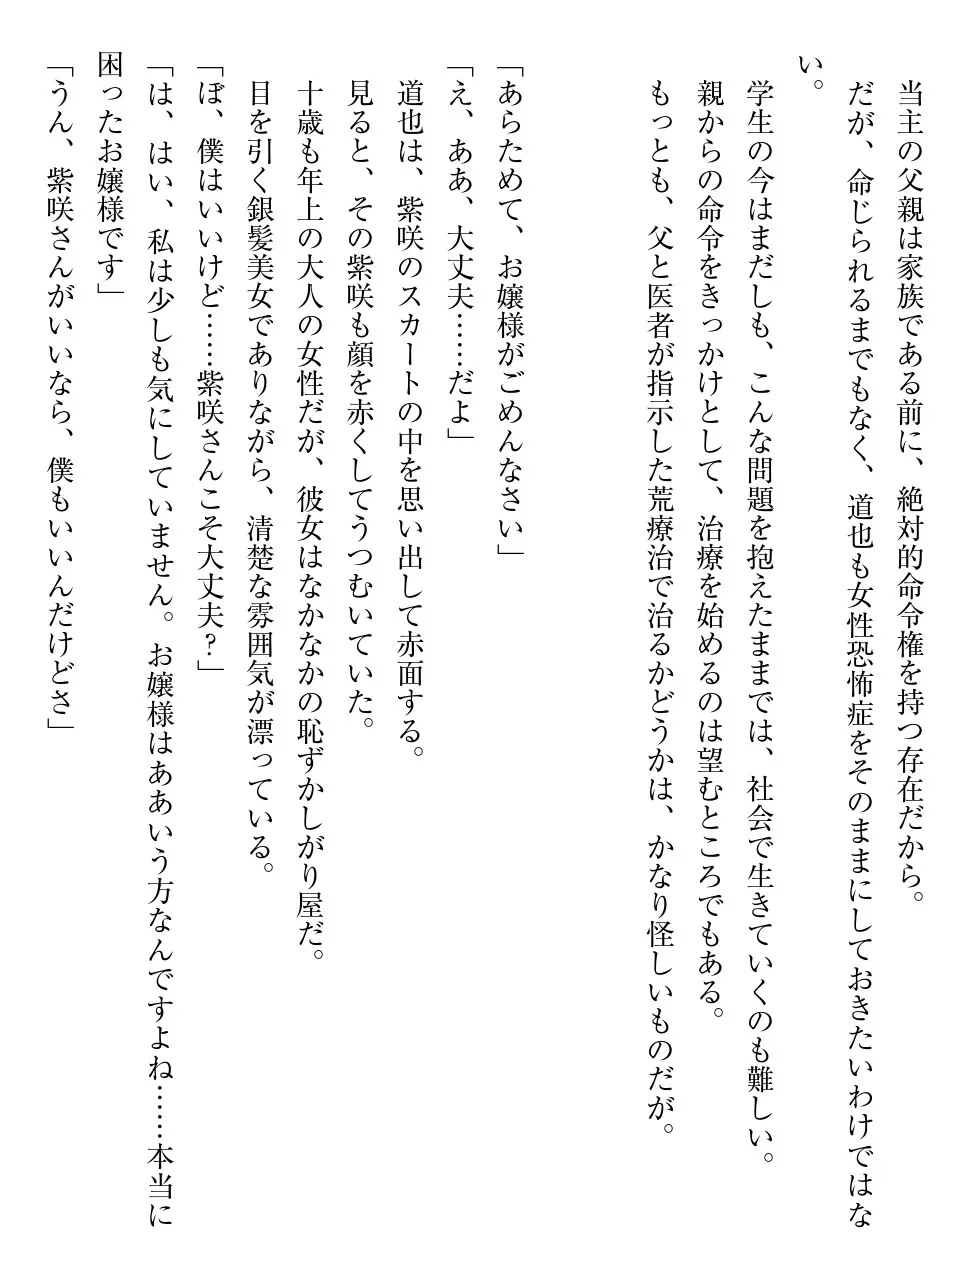 当主の父親は家族である前に、絶対的命令権を持つ存在だから。
だが、命じられるまでもなく、道也も女性恐怖症をそのままにしておきたいわけではな
い。
学生の今はまだしも、こんな問題を抱えたままでは、社会で生きていくのも難しい。
親からの命令をきっかけとして、治療を始めるのは望むところでもある。
もっとも、父と医者が指示した荒療治で治るかどうかは、かなり怪しいものだが。
「あらためて、お嬢様がごめんなさい」
「え、ああ、大丈夫……だよ」
道也は、紫咲のスカートの中を思い出して赤面する。
見ると、その紫咲も顔を赤くしてうつむいていた。
十歳も年上の大人の女性だが、彼女はなかなかの恥ずかしがり屋だ。
目を引く銀髪美女でありながら、清楚な雰囲気が漂っている。
「ぼ、僕はいいけど……紫咲さんこそ大丈夫?」
「は、はい、私は少しも気にしていません。お嬢様はああいう方なんですよね……本当に
困ったお嬢様です」
「うん、紫咲さんがいいなら、僕もいいんだけどさ」